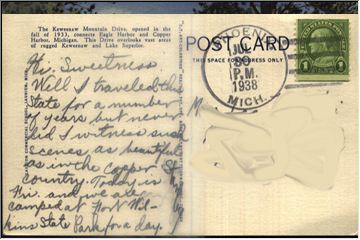 The Keweenaw Mountain Drive, opened in the
fall of 1933, connects Eagle Harbor and Copper
Harbor, Michigan. This Drive overlooks vast areas
of rugged Keweenaw and Lake Superior.
Hi. Sweetness
Well I traveled this
State for a number
of years but never
did I witness such
scenes as beautiful
as in the Copper
Country. Today is
Fri. and we are
camped at Fort Wil-
kins State Park for a day.
POST CARD
THIS SPACE FOR ADDRESS ONLY
PHOENIX
JUL
30
P.M.
1938
MICH.
1
M